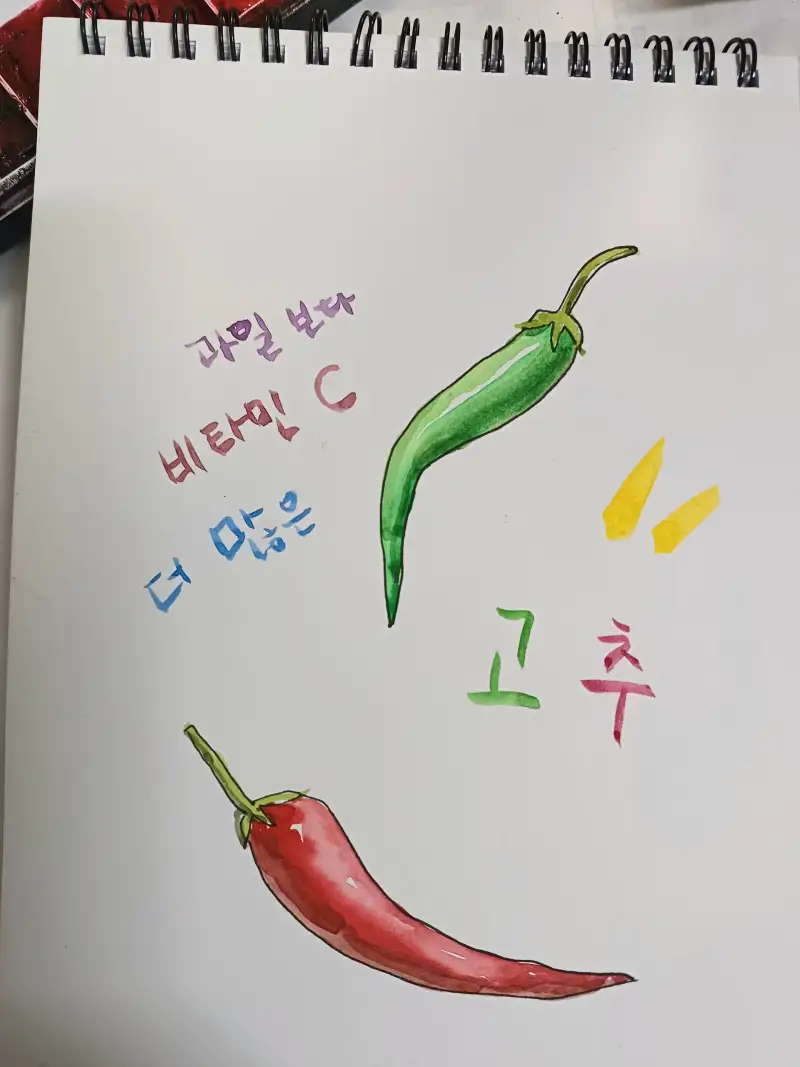 과일 보다
비타민 C
더 많은
고추